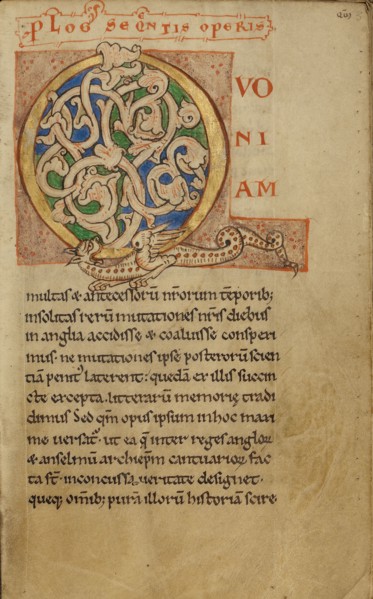 PLOG' SEQ̄NTIS OPERIS
QVO
NI
AM
multas & antecessorū nr̄orum tēporib;
insolitas rerū mutationes nr̄is diebus
in anglia accidisse & coaluisse conspexi
mus. ne mutationes ipse posterorū scien
tiā penit' laterent: quedā ex illis succin
cte excepta. litterarū memorie tradi
dimus. Sed qm̄ opus ipsum in hoc maxi
me versat'. ut ea q̄ inter reges anglorū
& anselmū archiep̄m cantuariorū fac
ta st̄. inconcussa veritate designet.
queq; om̄ib; purā illorū historiā scire